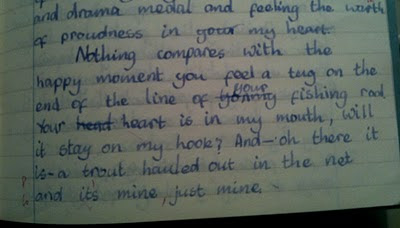 and drama medal and feeling the worth
of proudness in your my heart.
Nothing compares with the
happy moment you feel a tug on the
end of the line of your fishing rod
Your head heart is in my mouth, will
it stay on my hook? And - oh there it
is - a trout hauled out in the net
and its mine, just mine.